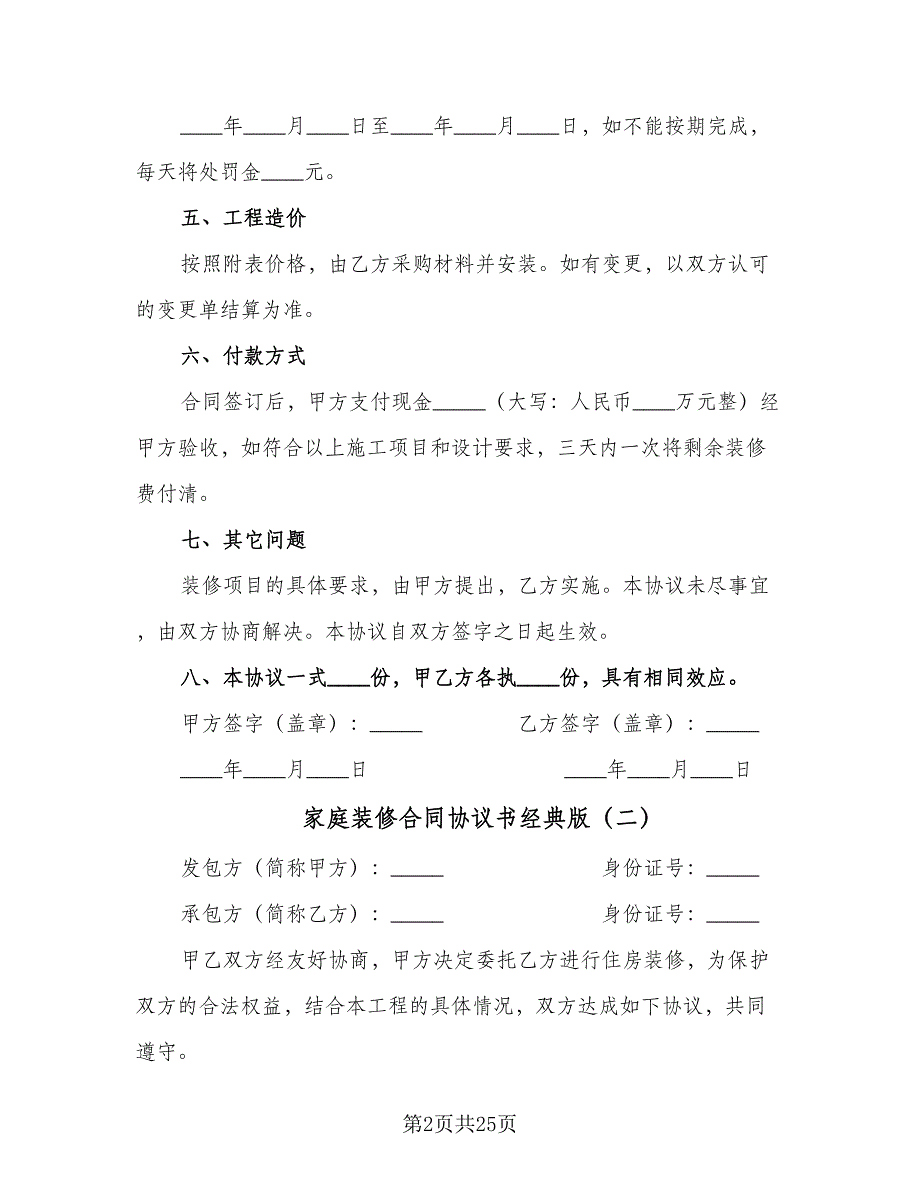 ____年____月____日至____年____月____日，如不能按期完成，
每天将处罚金____元。
五、工程造价
按照附表价格，由乙方采购材料并安装。如有变更，以双方认可
的变更单结算为准。
六、付款方式
合同签订后，甲方支付现金_____（大写：人民币____万元整）经
甲方验收，如符合以上施工项目和设计要求，三天内一次将剩余装修
费付清。
七、其它问题
装修项目的具体要求，由甲方提出，乙方实施。本协议未尽事宜
，由双方协商解决。本协议自双方签字之日起生效。
八、本协议一式____份，甲乙方各执____份，具有相同效应。
甲方签字（盖章）：_____ 乙方签字（盖章）：_____
____年____月____日 ____年____月____日
家庭装修合同协议书经典版（二）
发包方（简称甲方）：_____ 身份证号：_____
承包方（简称乙方）：_____ 身份证号：_____
甲乙双方经友好协商，甲方决定委托乙方进行住房装修，为保护
双方的合法权益，结合本工程的具体情况，双方达成如下协议，共同
遵守。
第2页共25页